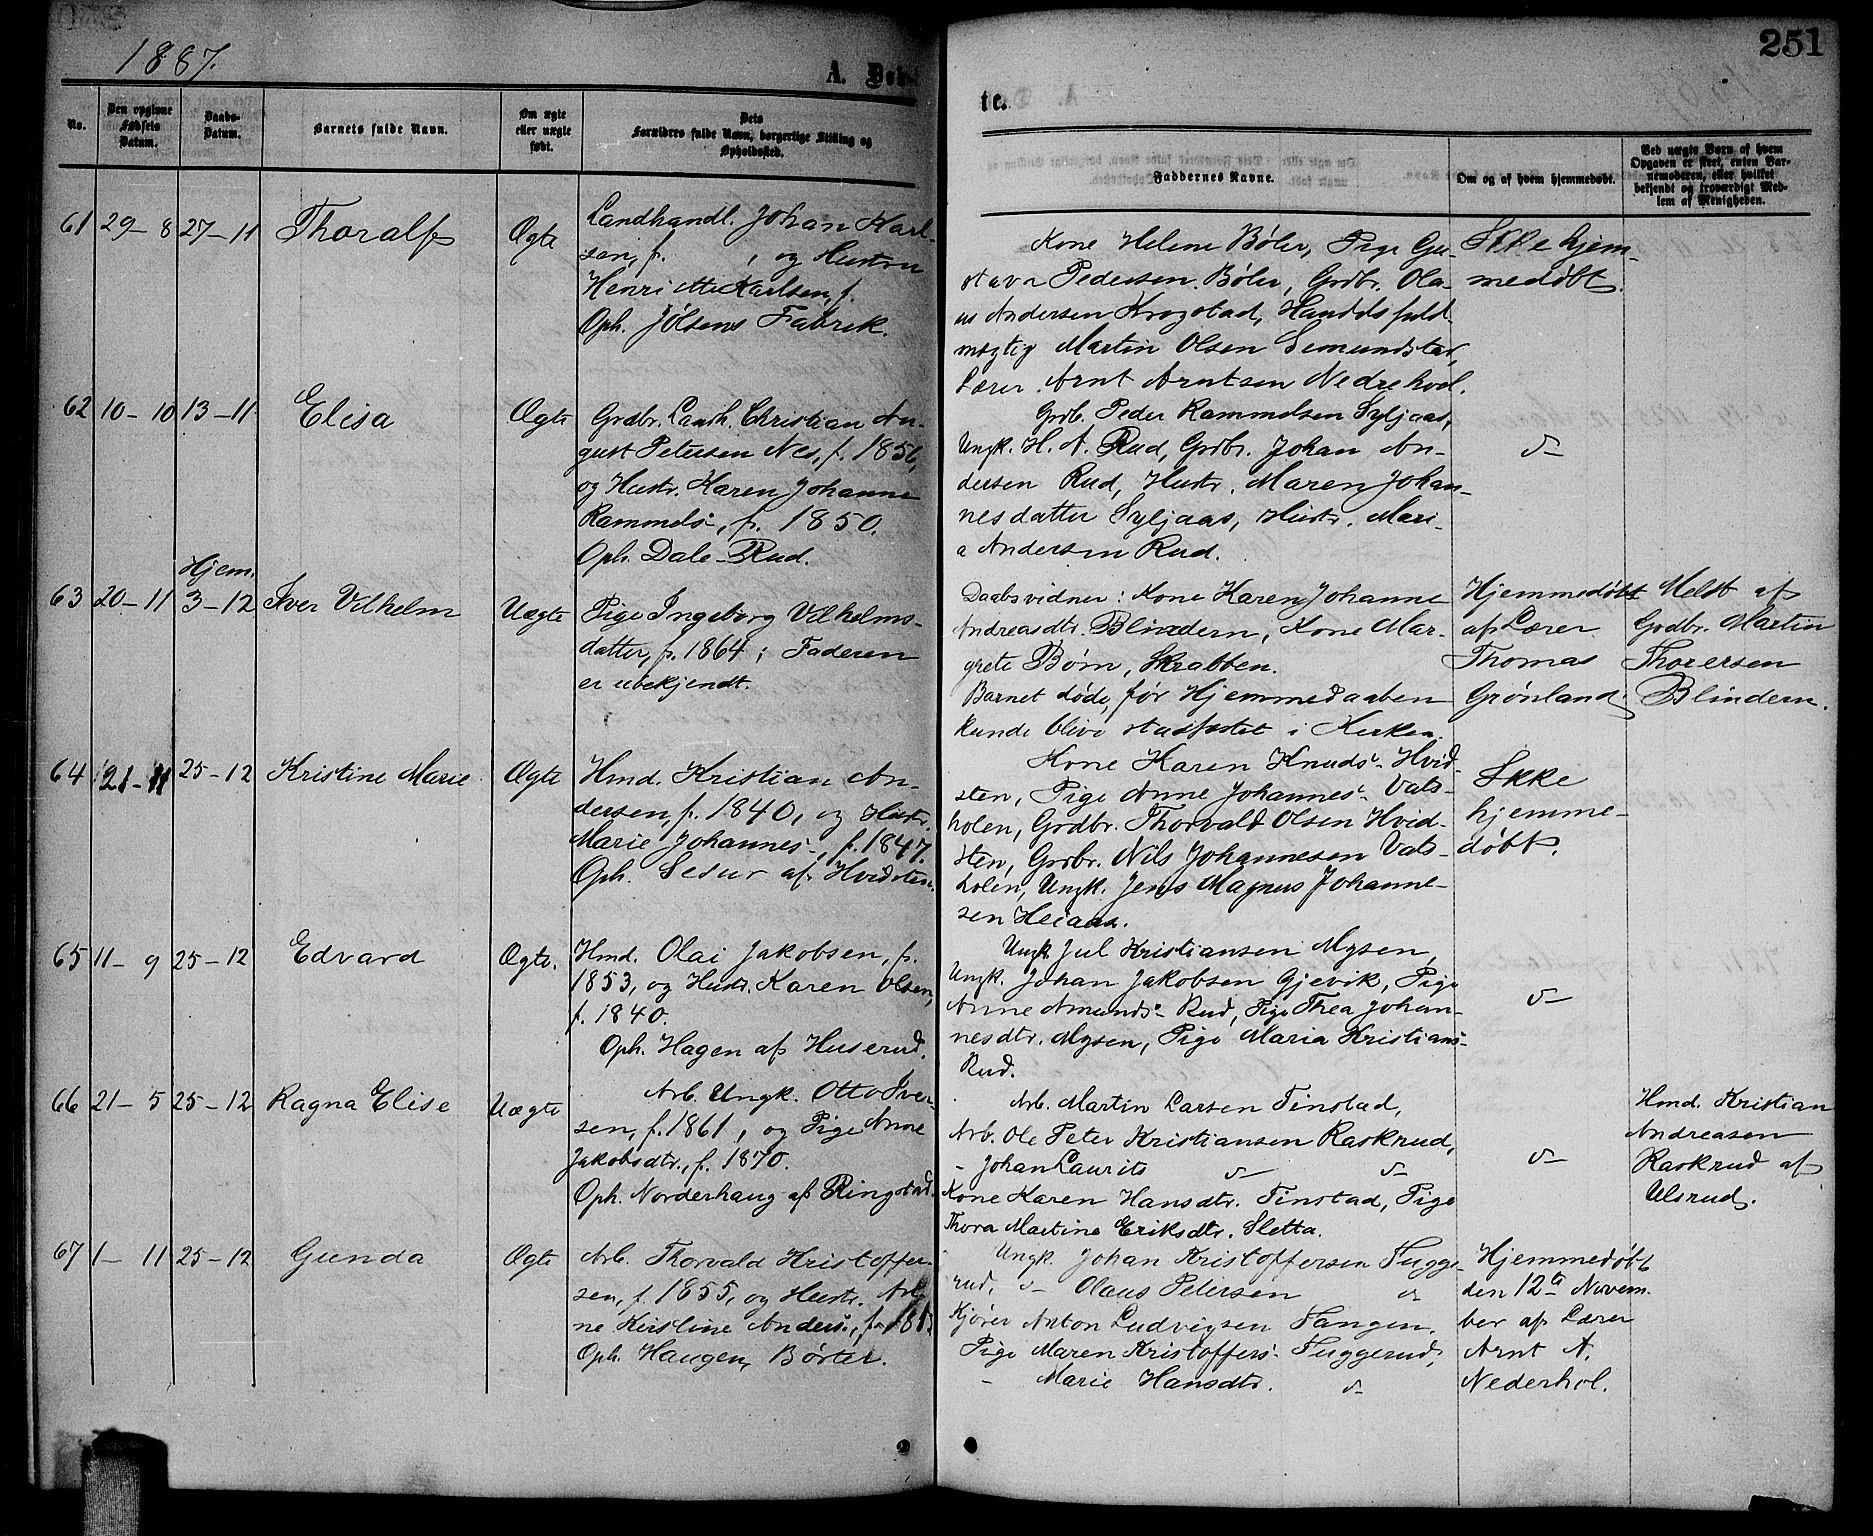 1887.
A. Døb-
te.
251
No.
Den opgivne Fødsels Datum.
Daabs-Datum.
Barnets fulde Navn.
Om ægte eller uægte født.
Dets Forældres fulde Navn, borgerlige Stilling og Opholdssted.
Faddernes Navne.
Om og af hvem hjemmedøbt.
Ved uægte Børn af hvem
Opgaven er sket, enten Bar-
nemoderen, eller hvilket
bekjendt og troværdigt Med-
lem af Menigheden.
61 29-8 27-11 Thoralf Ægte
Landhandl. Johan Karl-
sen, f. , og Hustru
Henriette Karlsen, f.
Oph. Jölsens Fabrik.
Kone Helene Bøler, Pige Gu-
stava Pedersen Bøler, Grdbr. Ola-
us Andersen Krogstad, Handelsfuld-
mægtig Martin Olsen Semundstad,
Lærer Arnt Arntsen Nedrehol.
Ikke hjem-
medøbt.
62 10-10 13-11 Elisa Ægte
Grdbr. Landh. Christian Au-
gust Petersen Nes, f. 1856,
og Hustr. Karen Johanne
Rammels-, f. 1850.
Oph. Dale-Rud.
Grdb. Peder Rammelsen Syljaas,
Ungk. H. A. Rud, Grdbr. Johan An-
dersen Rud, Hustr. Maren Johan-
nesdatter Syljaas, Hustr. Mari-
a Andersen Rud.
63 20-11 Hjem. 3-12 Iver Vilhelm Uægte
Pige Ingeborg Vilhelms-
datter, f. 1864; Faderen
er ubekjendt.
Daabsvidner: Kone Karen Johanne
Andreasdtr. Blindern, Kone Mar-
grete Bøm, Skrabben.
Barnet døde, før Hjemmedaaben
kunde blive stadfæstet i Kirken.
Hjemmedøbt
af Lærer
Thomas
Grönland.
Meldt af
Grdbr. Martin
Thorersen
Blindern.
64 21-11 25-12 Kristine Marie Ægte
Hmd. Kristian An-
dersen, f. 1840, og Hustr.
Marie Johannes-, f. 1847.
Oph. Setur af Hvidsten.
Kone Karen Knuds- Hvid-
sten, Pige Anne Johannes- Vals-
holen, Grdbr. Thorvald Olsen Hvid-
sten, Grdbr. Nils Johannesen Vals-
holen, Ungk. Jens Magnus Johanne-
sen Heiaas.
Ikke
hjemme-
døbt.
65 11-9 25-12 Edvard Ægte.
Hmd. Olai Jakobsen, f.
1853, og Hustr. Karen Olsen,
f. 1840.
Oph. Hagen af Huserud.
Ungk. Jul Kristiansen Mysen,
Ungk. Johan Jakobsen Gjevik, Pige
Anne Amunds- Rud, Pige Thea Johan-
nesdtr. Mysen, Pige Maria Kristians-
Rud.
66 21-5 25-12 Ragna Elise Uægte
Arb. Ungk. Otto Iver-
sen, f. 1861, og Pige Anne
Jakobsdtr., f. 1870.
Oph. Norderhaug af Ringstad.
Arb. Martin Larsen Finstad,
Arb. Ole Peter Kristiansen Raskrud,
- Johan Laurits
Kone Karen Hansdtr. Finstad, Pige
Thora Martine Eriksdtr. Sletta.
Hmd. Kristian
Andreasen
Raskrud af
Ulsrud.
67 1-11 25-12 Gunda Ægte
Arb. Thorvald Kristoffer-
sen, f. 1855, og Hustr. An-
ne Kirstine Anders-, f.
Oph. Haugen, Börter.
Ungk. Johan Kristoffersen Tugge-
rud, Olaus Petersen
Kjører Anton Ludvigsen Tangen,
Pige Maren Kristoffers- Tuggerud,
- Marie Hansdtr.
Hjemmedøbt
den 12te Novem-
ber af Lærer
Arnt A.
Nederhol.